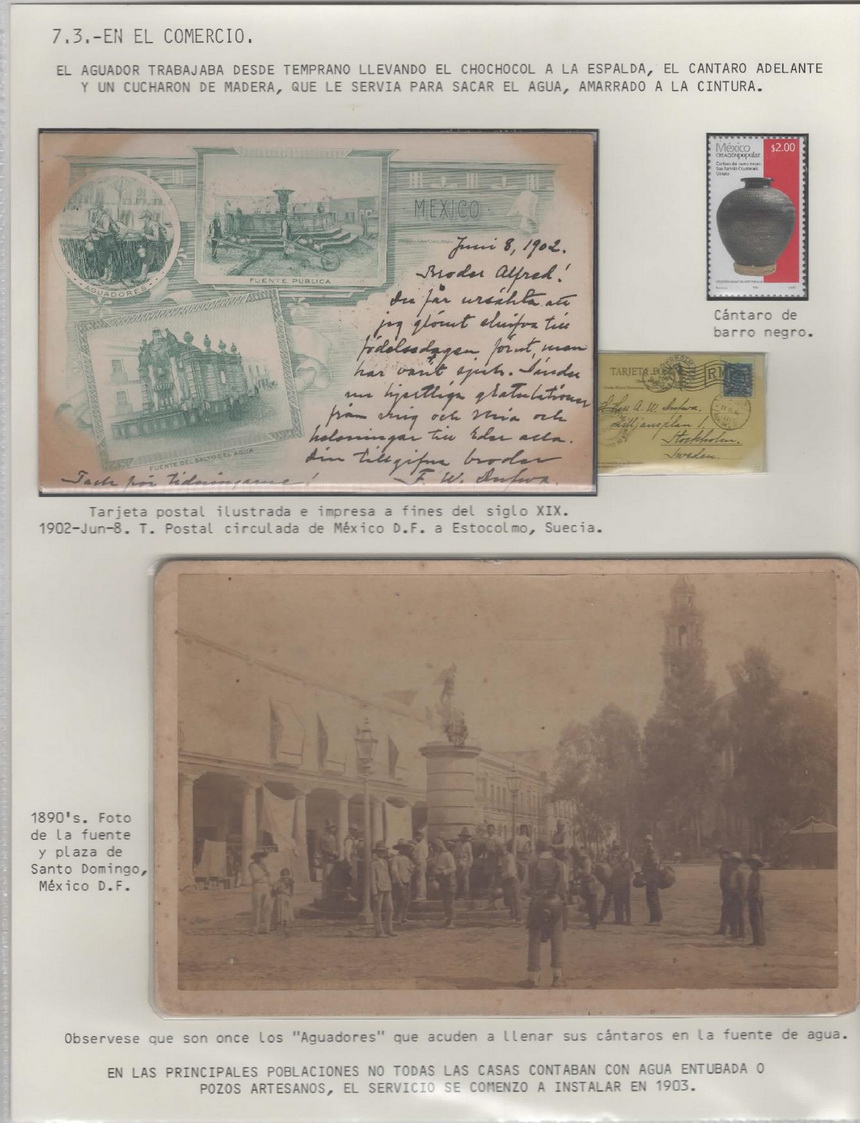 7.3.-EN EL COMERCIO.
EL AGUADOR TRABAJABA DESDE TEMPRANO LLEVANDO EL CHOCHOCOL A LA ESPALDA, EL CANTARO ADELANTE
Y UN CUCHARON DE MADERA, QUE LE SERVIA PARA SACAR EL AGUA, AMARRADO A LA CINTURA.
AGUADORES
FUENTE PUBLICA
MEXICO
FUENTE DEL SALTO DEL AGUA
Juni 8, 1902.
Broder Alfred!
Du får ursäkta att
jag glömt skrifva till
födelsedagen förut men
har varit sjuk. Sänder
nu hjertliga gratulationer
från mig och Mia och
helsningar till Eder alla.
Din tillgifna broder
F. W.
Tack för tidningarne!
México
creaciónpopular
$2.00
Cántaro de
barro negro.
TARJETA
A. W.
Lilljansplan 1
Stockholm.
Sweden.
Tarjeta postal ilustrada e impresa a fines del siglo XIX.
1902-Jun-8. T. Postal circulada de México D.F. a Estocolmo, Suecia.
1890's. Foto
de la fuente
y plaza de
Santo Domingo,
México D.F.
Observese que son once los "Aguadores" que acuden a llenar sus cántaros en la fuente de agua.
EN LAS PRINCIPALES POBLACIONES NO TODAS LAS CASAS CONTABAN CON AGUA ENTUBADA O
POZOS ARTESANOS, EL SERVICIO SE COMENZO A INSTALAR EN 1903.